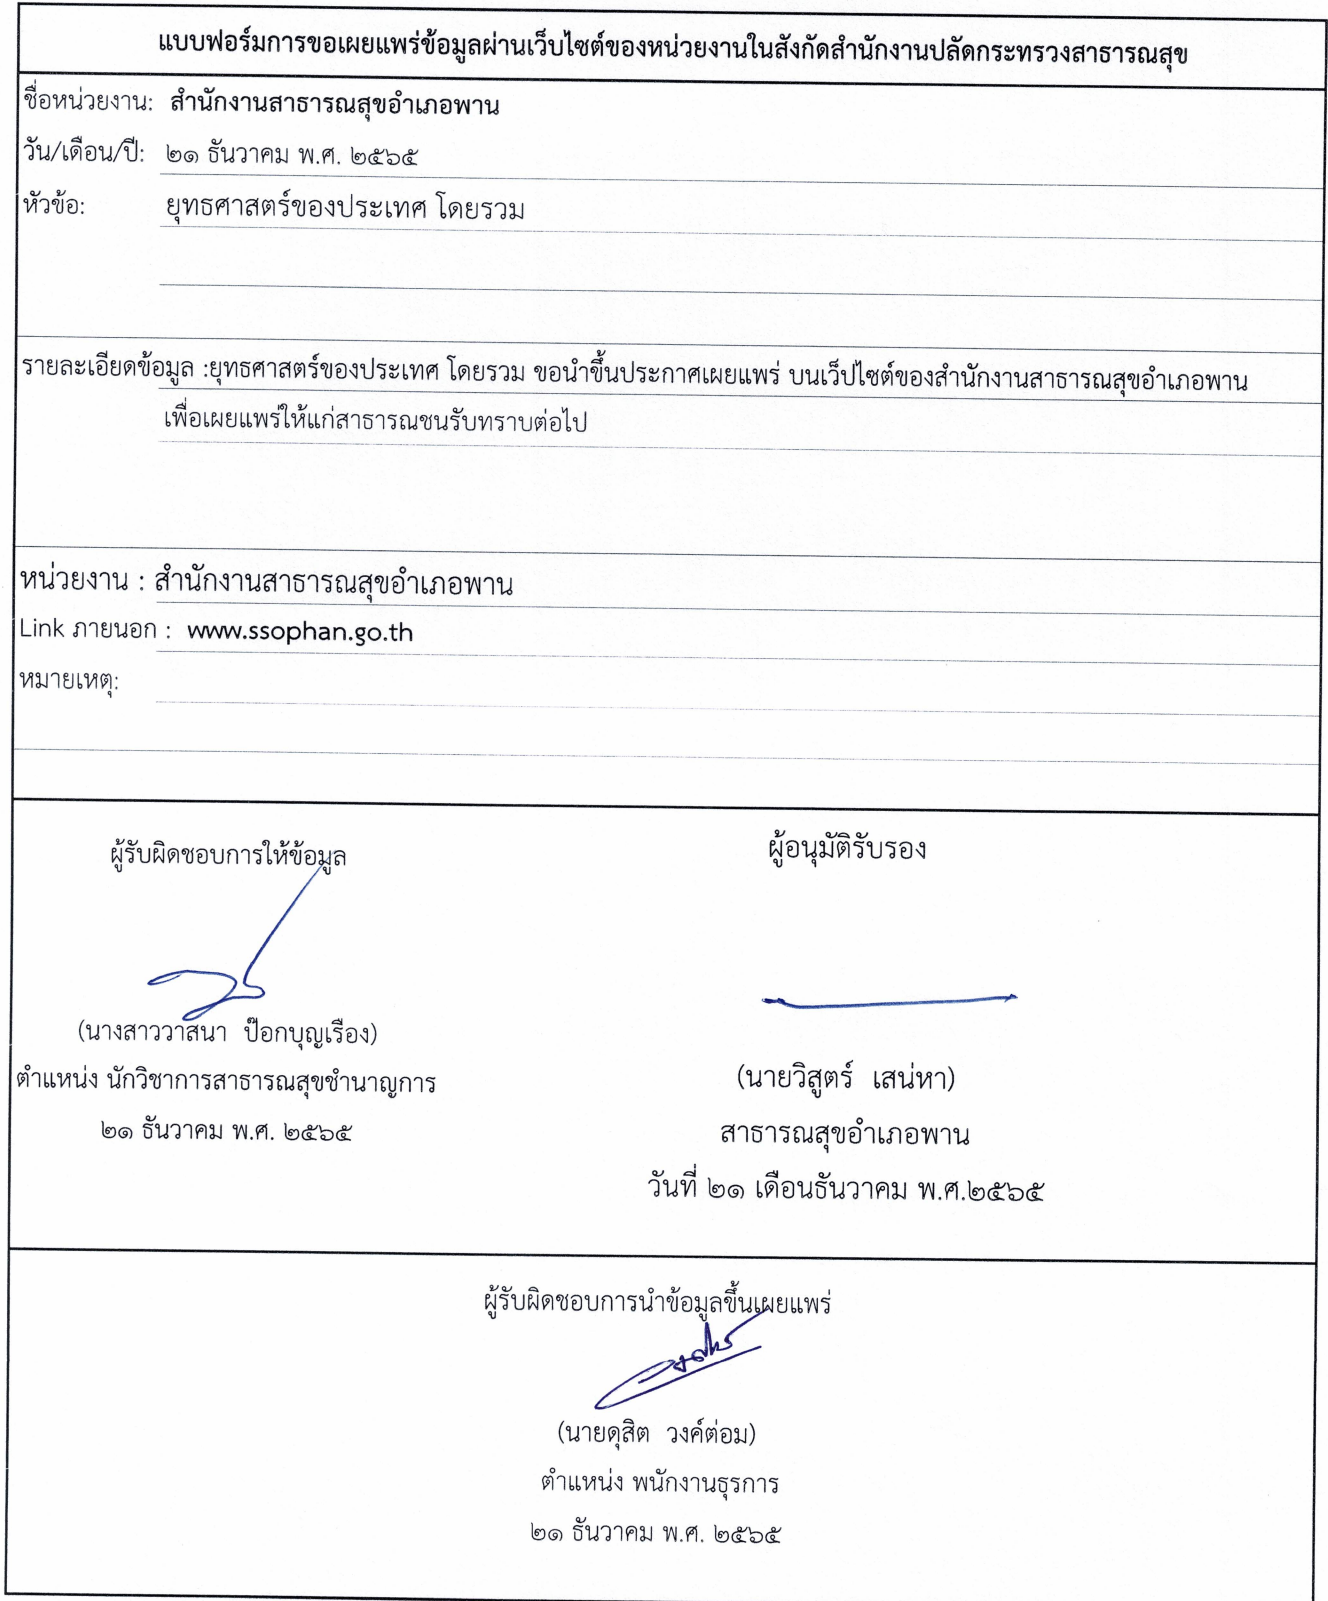 แบบฟอร์มการขอเผยแพร่ข้อมูลผ่านเว็บไซต์ของหน่วยงานในสังกัดสำนักงานปลัดกระทรวงสาธารณสุข
ชื่อหน่วยงาน: สำนักงานสาธารณสุขอำเภอพาน
วัน/เดือน/ปี: ๒๑ ธันวาคม พ.ศ. ๒๕๖๕
หัวข้อ: ยุทธศาสตร์ของประเทศ โดยรวม
รายละเอียดข้อมูล :ยุทธศาสตร์ของประเทศ โดยรวม ขอนำขึ้นประกาศเผยแพร่ บนเว็ปไซต์ของสำนักงานสาธารณสุขอำเภอพาน
เพื่อเผยแพร่ให้แก่สาธารณชนรับทราบต่อไป
หน่วยงาน : สำนักงานสาธารณสุขอำเภอพาน
Link ภายนอก : www.ssophan.go.th
หมายเหตุ:
ผู้รับผิดชอบการให้ข้อมูล
(นางสาววาสนา ป๊อกบุญเรือง)
ตำแหน่ง นักวิชาการสาธารณสุขชำนาญการ
๒๑ ธันวาคม พ.ศ. ๒๕๖๕
ผู้อนุมัติรับรอง
(นายวิสูตร์ เสน่หา)
สาธารณสุขอำเภอพาน
วันที่ ๒๑ เดือนธันวาคม พ.ศ.๒๕๖๕
ผู้รับผิดชอบการนำข้อมูลขึ้นเผยแพร่
(นายดุสิต วงค์ต่อม)
ตำแหน่ง พนักงานธุรการ
๒๑ ธันวาคม พ.ศ. ๒๕๖๕